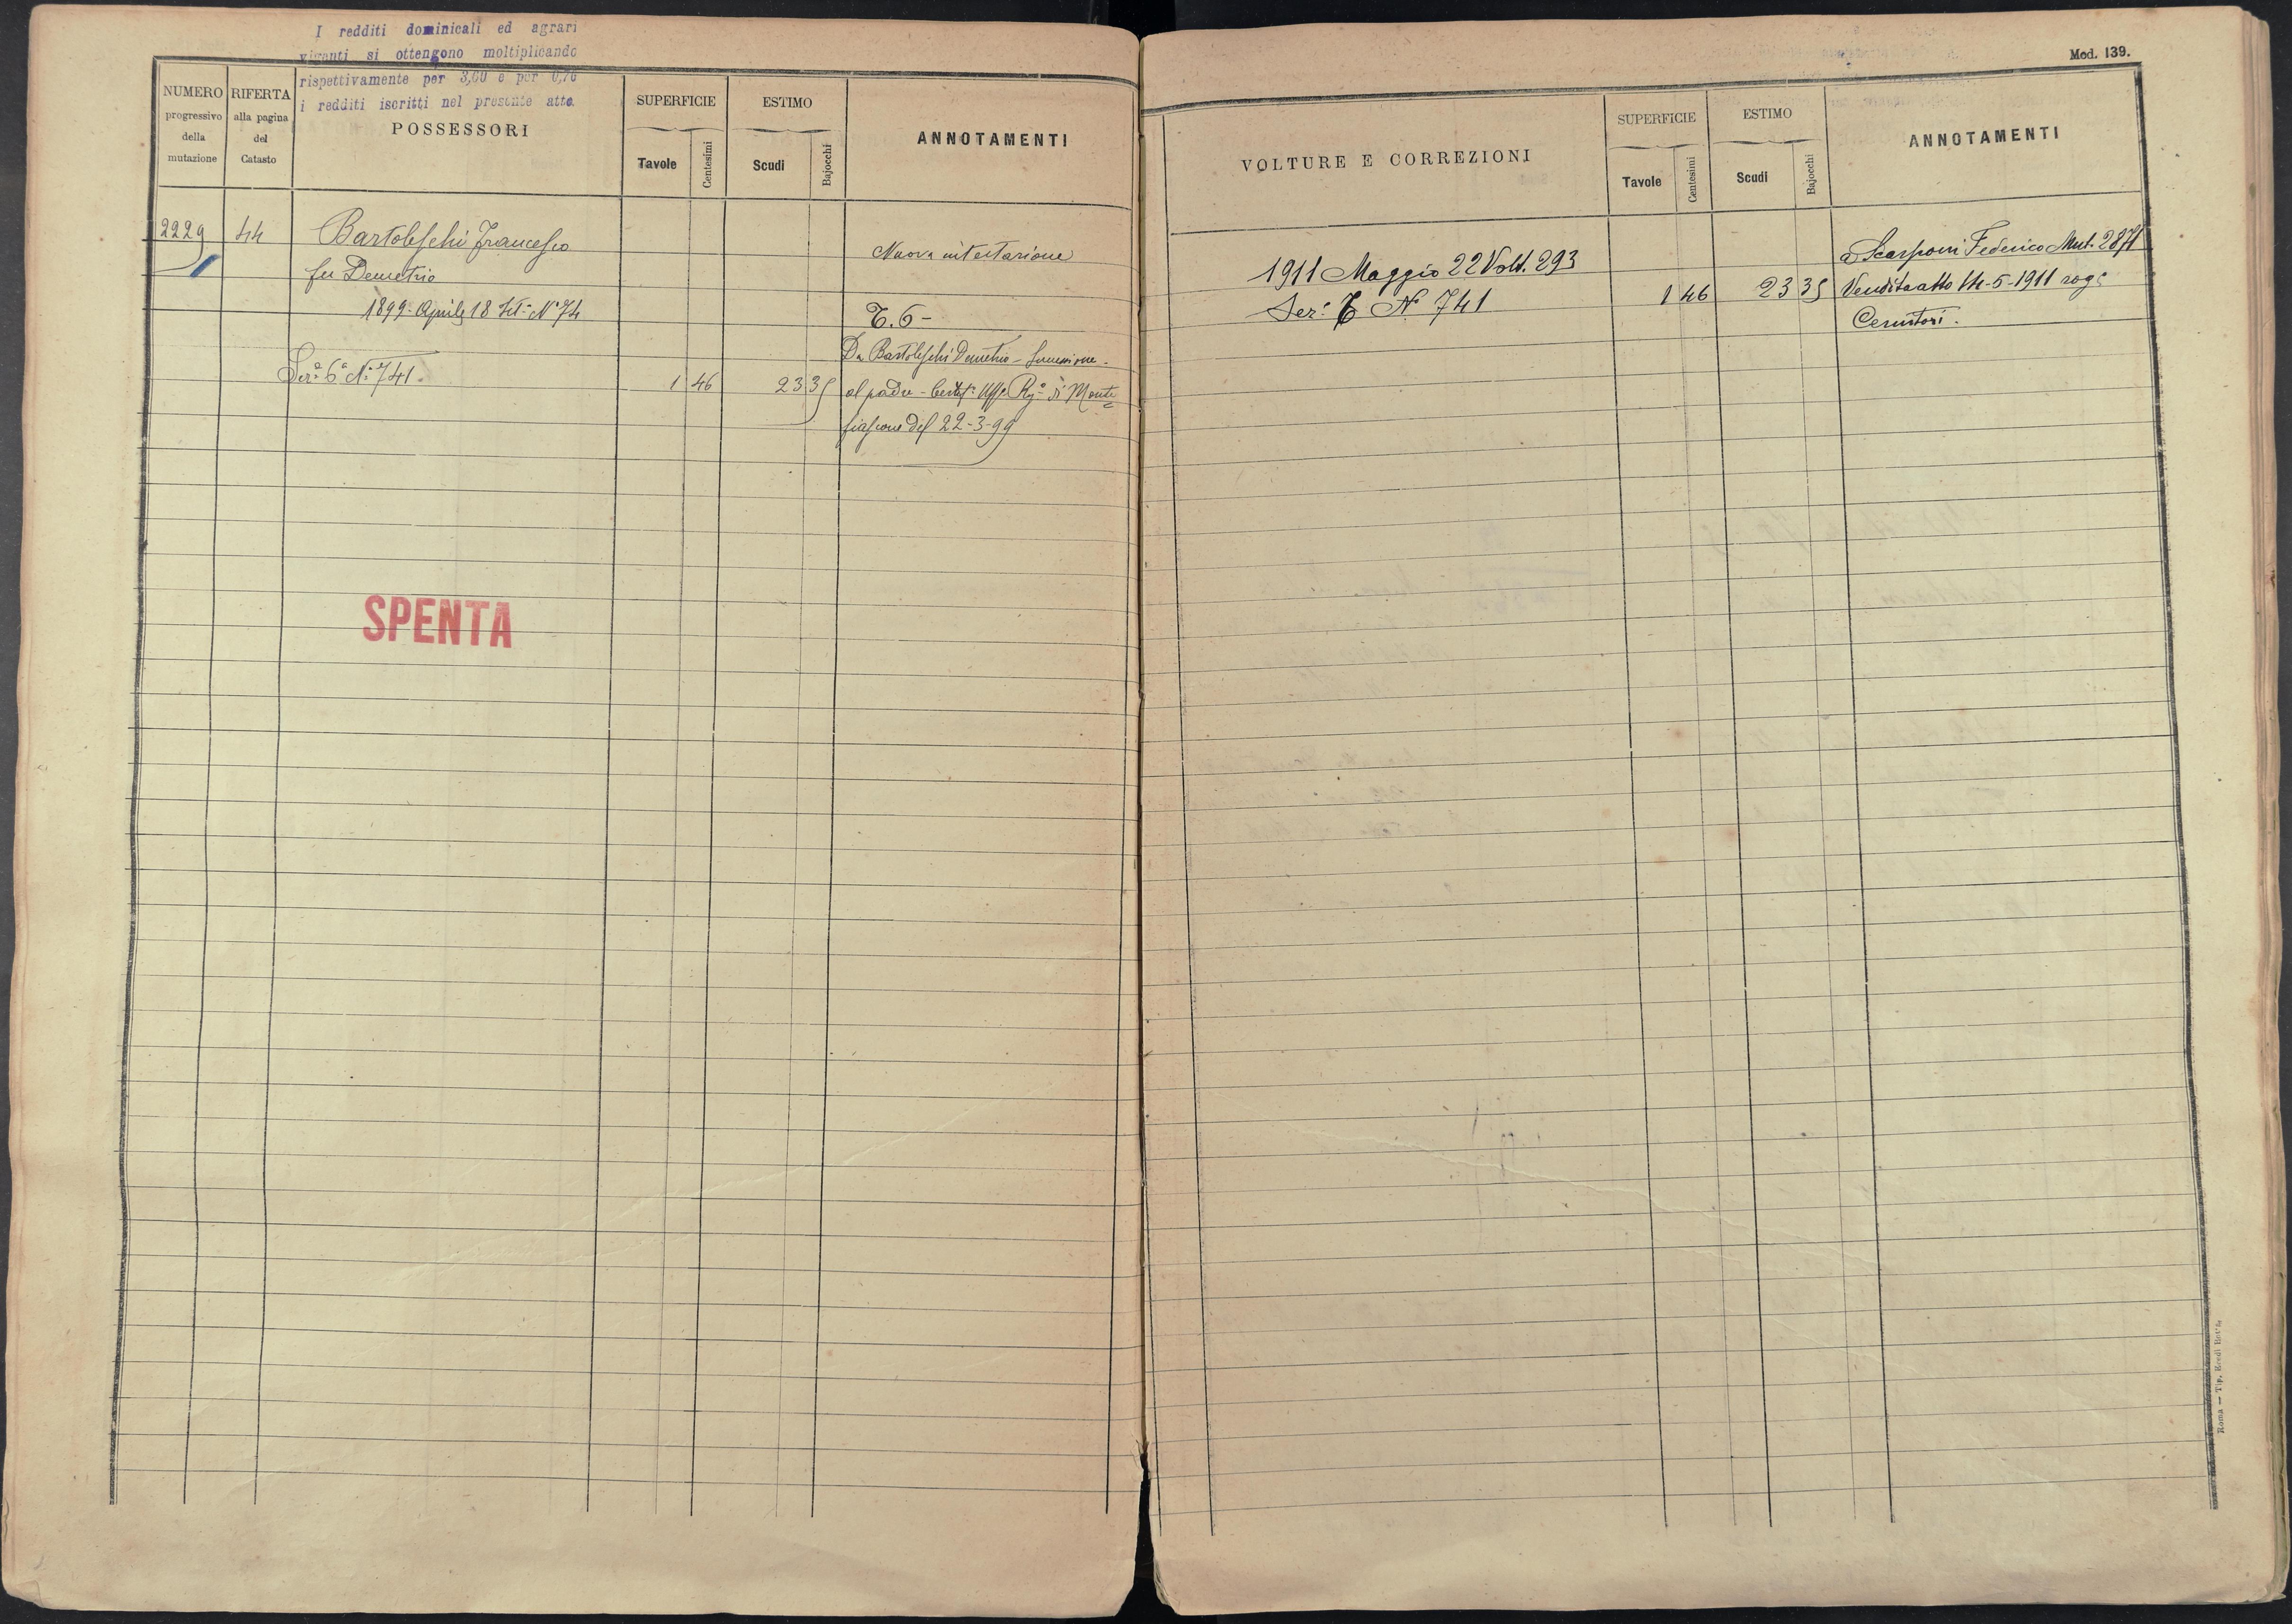 I redditi dominicali ed agrari
vigenti si ottengono moltiplicando
rispettivamente per 3,60 e per 0,70
i redditi iscritti nel presente atto.
NUMERO progressivo della mutazione
RIFERTA alla pagina del Catasto
POSSESSORI
SUPERFICIE
Tavole
Centesimi
ESTIMO
Scudi
Bajocchi
ANNOTAMENTI
2229 44 Bartoleschi Francesco
fu Demetrio
Nuova intestazione
1899 Aprile 18 N° 74
T. 6 -
Da Bartoleschi Demetrio - Successione
Ser.e 6a N° 741. 1 46 23 35 al padre - Certif. Uff. Rg. di Monte
fiascone del 22-3-99
SPENTA
Mod. 139.
VOLTURE E CORREZIONI
SUPERFICIE
Tavole
Centesimi
ESTIMO
Scudi
Bajocchi
ANNOTAMENTI
1911 Maggio 22 Volt. 293
a Scarponi Federico Mut. 2871
Ser. 6 N° 741 1 46 23 35 Vendita atto 14-5-1911 rog.
Roma — Tip. Eredi Botta